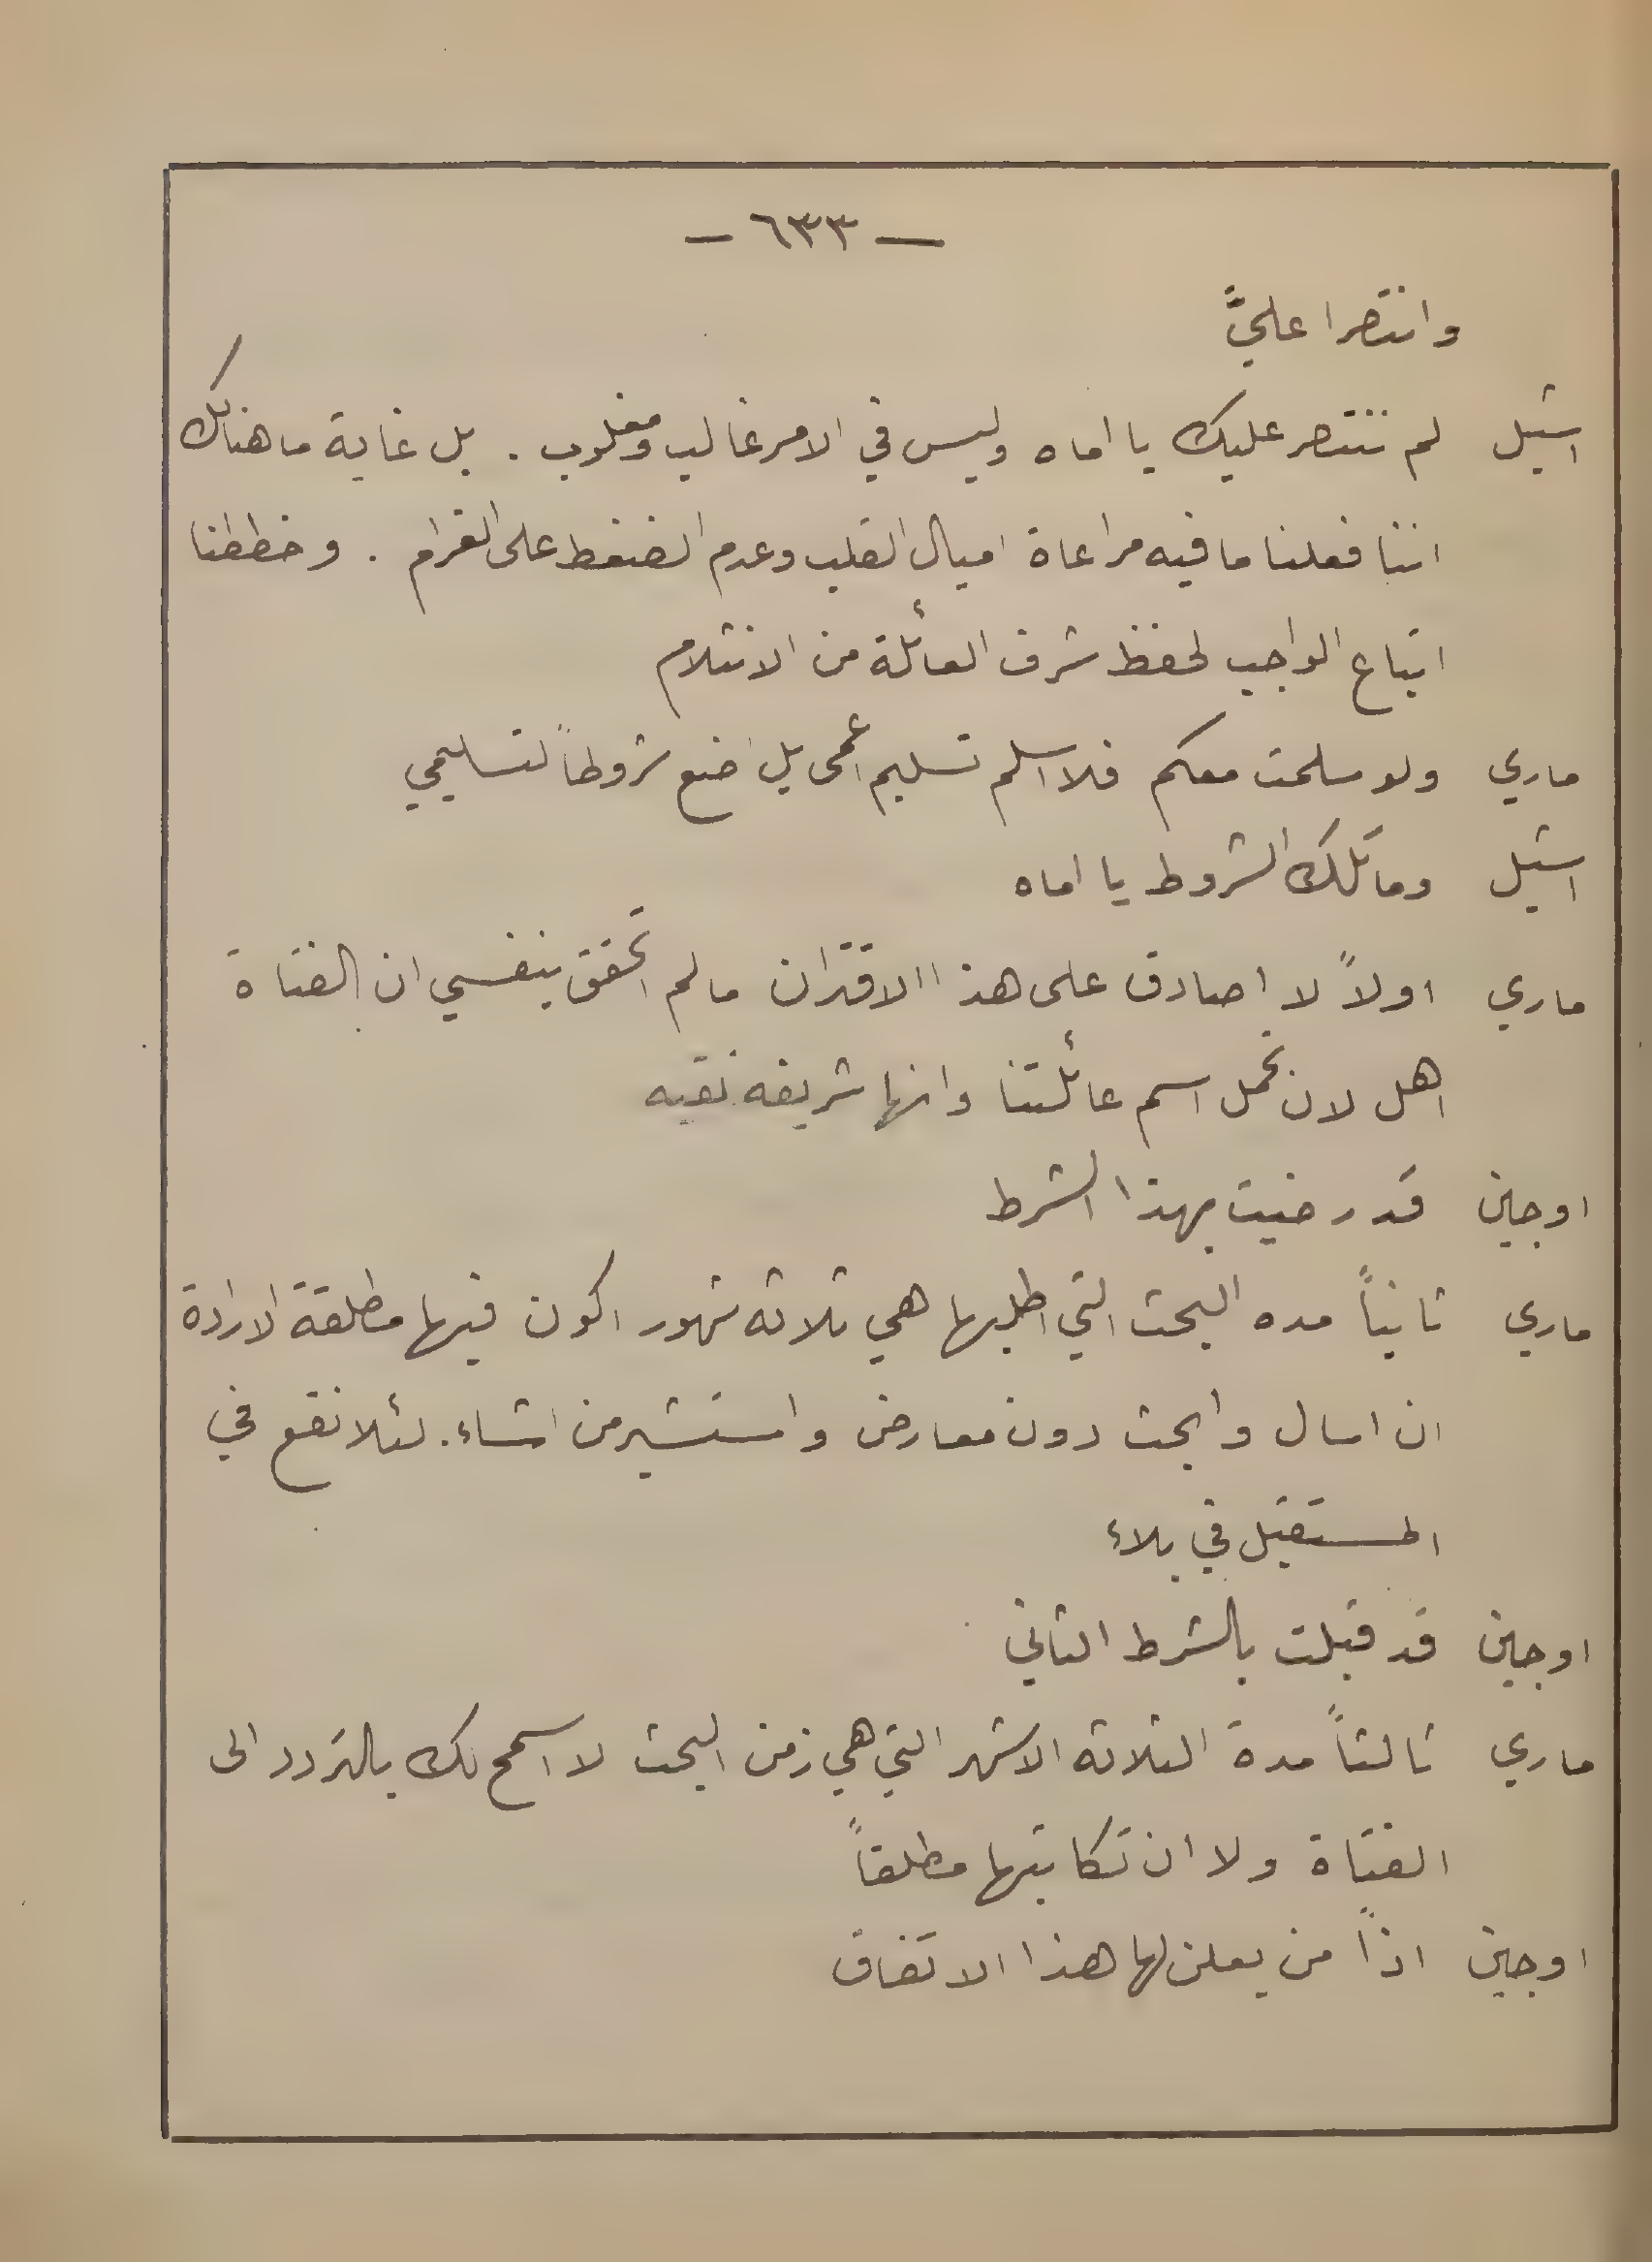 — ٦٣٣ —
وانتصرا عليَّ
استيل لم ننتصر عليك يا اماه وليس في الامر غالب ومغلوب . بل غاية ما هنالك
اننا فعلنا ما فيه مراعاة اميال القلب وعدم الضغط على الغرام . وخططنا
اتباع الواجب لحفظ شرف العائلة من الانثلام
ماري ولو سلمت معكم فلا اسلم تسليم اعمى بل اضع شروطاً لتسليمي
استيل وما تلك الشروط يا اماه
ماري اولاً لا اصادق على هذا الاقتران ما لم اتحقق بنفسي ان الفتاة
اهل لان تحمل اسم عائلتنا وانها شريفه نقيه
اوجين قد رضيت بهذا الشرط
ماري ثانياً مده البحث التي اطلبها هي ثلاثه شهور اكون فيها مطلقة الارادة
ان اسال وابحث دون معارض واستشير من اشاء . لئلا نقع في
المستقبل في بلاء
اوجين قد قبلت بالشرط الثاني
ماري ثالثاً مدة الثلاثه الاشهر التي هي زمن البحث لا اسمح لك بالتردد الى
الفتاة ولا ان تكاتبها مطلقاً
اوجين اذاً من يعلن لها هذا الاتفاق